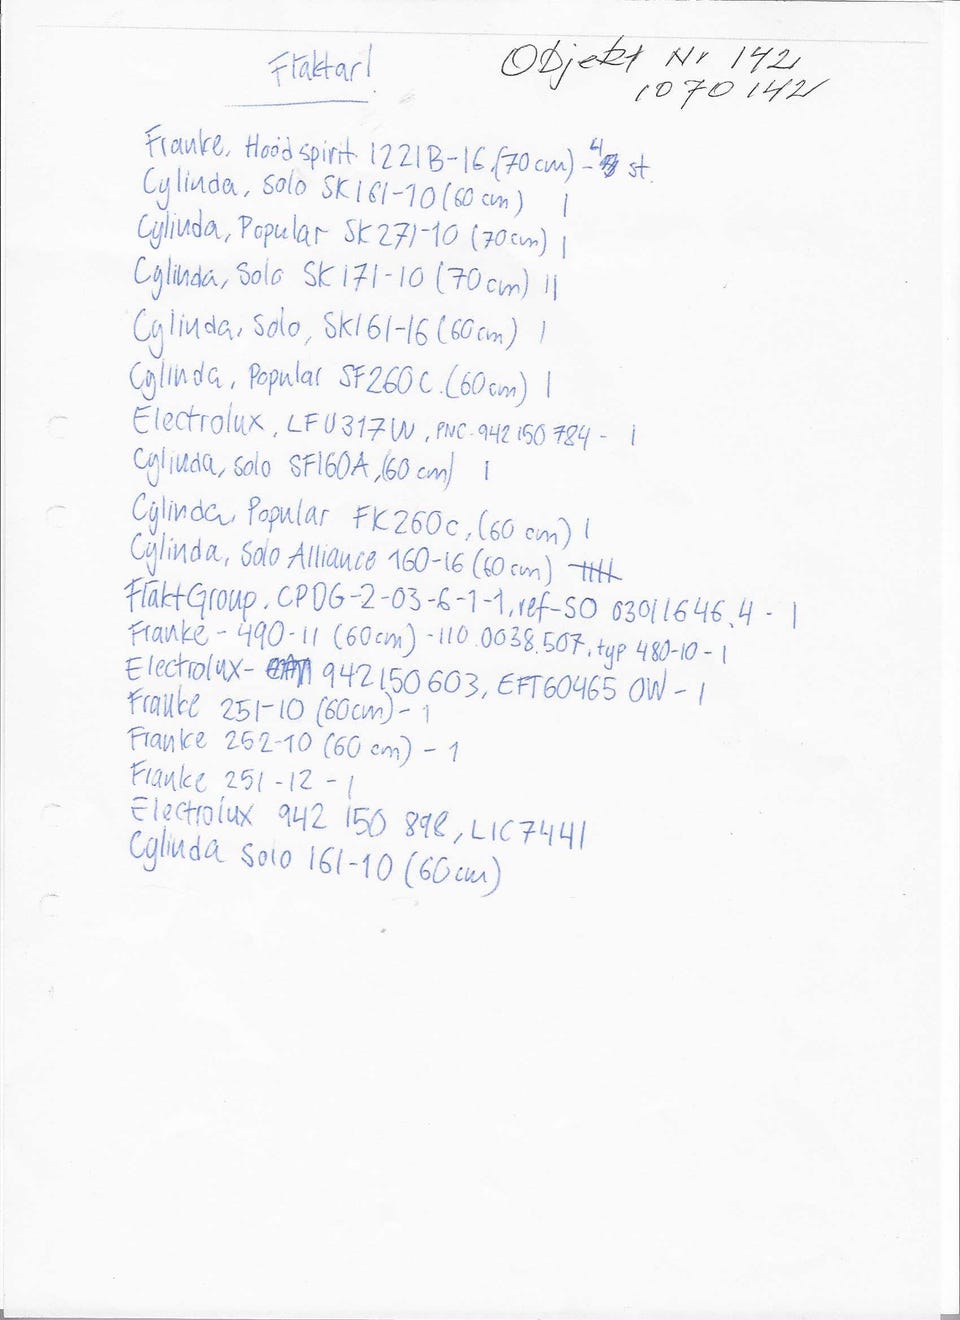 Fläktar!
Objekt Nr 142
1070142
Franke, Hoodspirit 1221B-16, (70cm) - 4 st.
Cylinda, Solo SK161-10 (60 cm) I
Cylinda, Popular SK271-10 (70cm) I
Cylinda, Solo SK171-10 (70cm) II
Cylinda, Solo, SK161-16 (60cm) I
Cylinda, Popular SF260C. (60cm) I
Electrolux, LFU317W, PNC-942 150 784 - I
Cylinda, Solo SF160A, (60 cm) I
Cylinda, Popular FK260c, (60 cm) I
Cylinda, Solo Alliance 160-16 (60cm) IIII
FläktGroup, CPDG-2-03-6-1-1, ref-SO 03011646.4 - I
Franke - 490-11 (60cm) -110.0038.507, typ 480-10 - I
Electrolux- 942150603, EFT60465 OW - I
Franke 251-10 (60cm) - 1
Franke 252-10 (60 cm) - 1
Franke 251-12 - I
Electrolux 942 150 898, LIC7441
Cylinda Solo 161-10 (60cm)